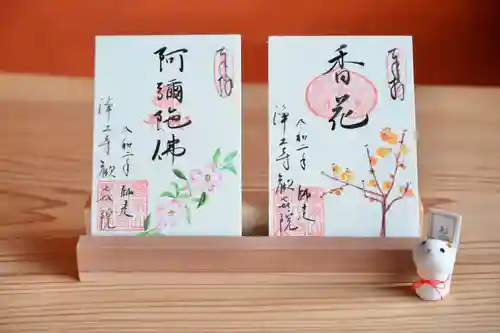 奉拝
阿彌陀佛
令和二年 師走
浄土寺 歓喜院
奉拝
香花
令和二年 師走
浄土寺 歓喜院